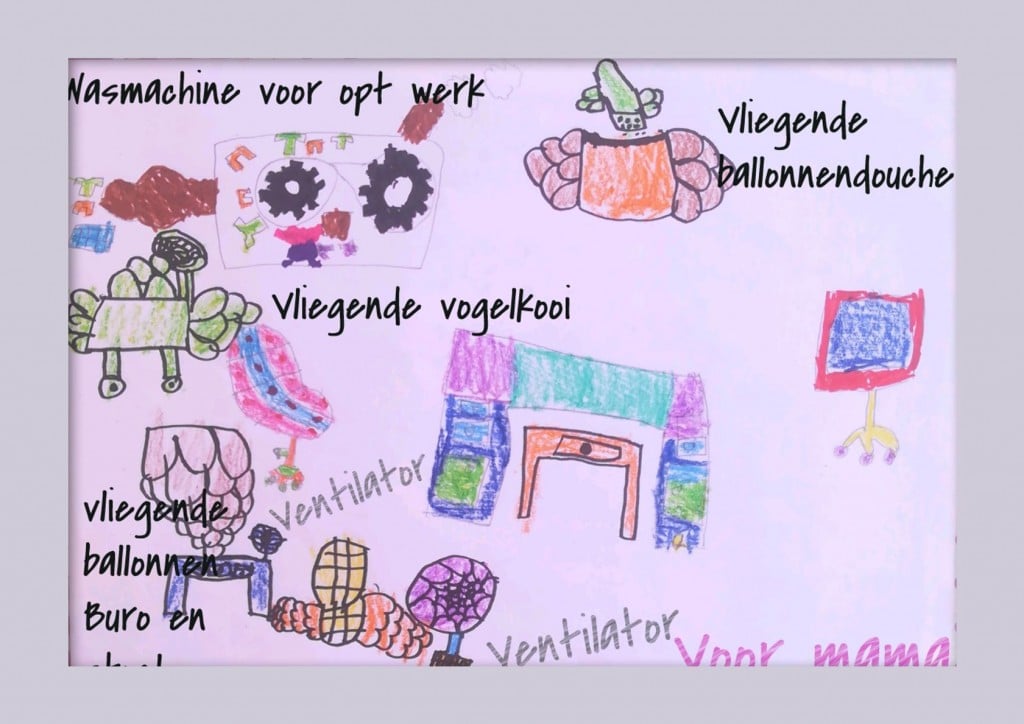 Wasmachine voor opt werk
Vliegende
ballonnendouche
Vliegende vogelkooi
Ventilator
vliegende
ballonnen
Buro en
Ventilator
Voor mama